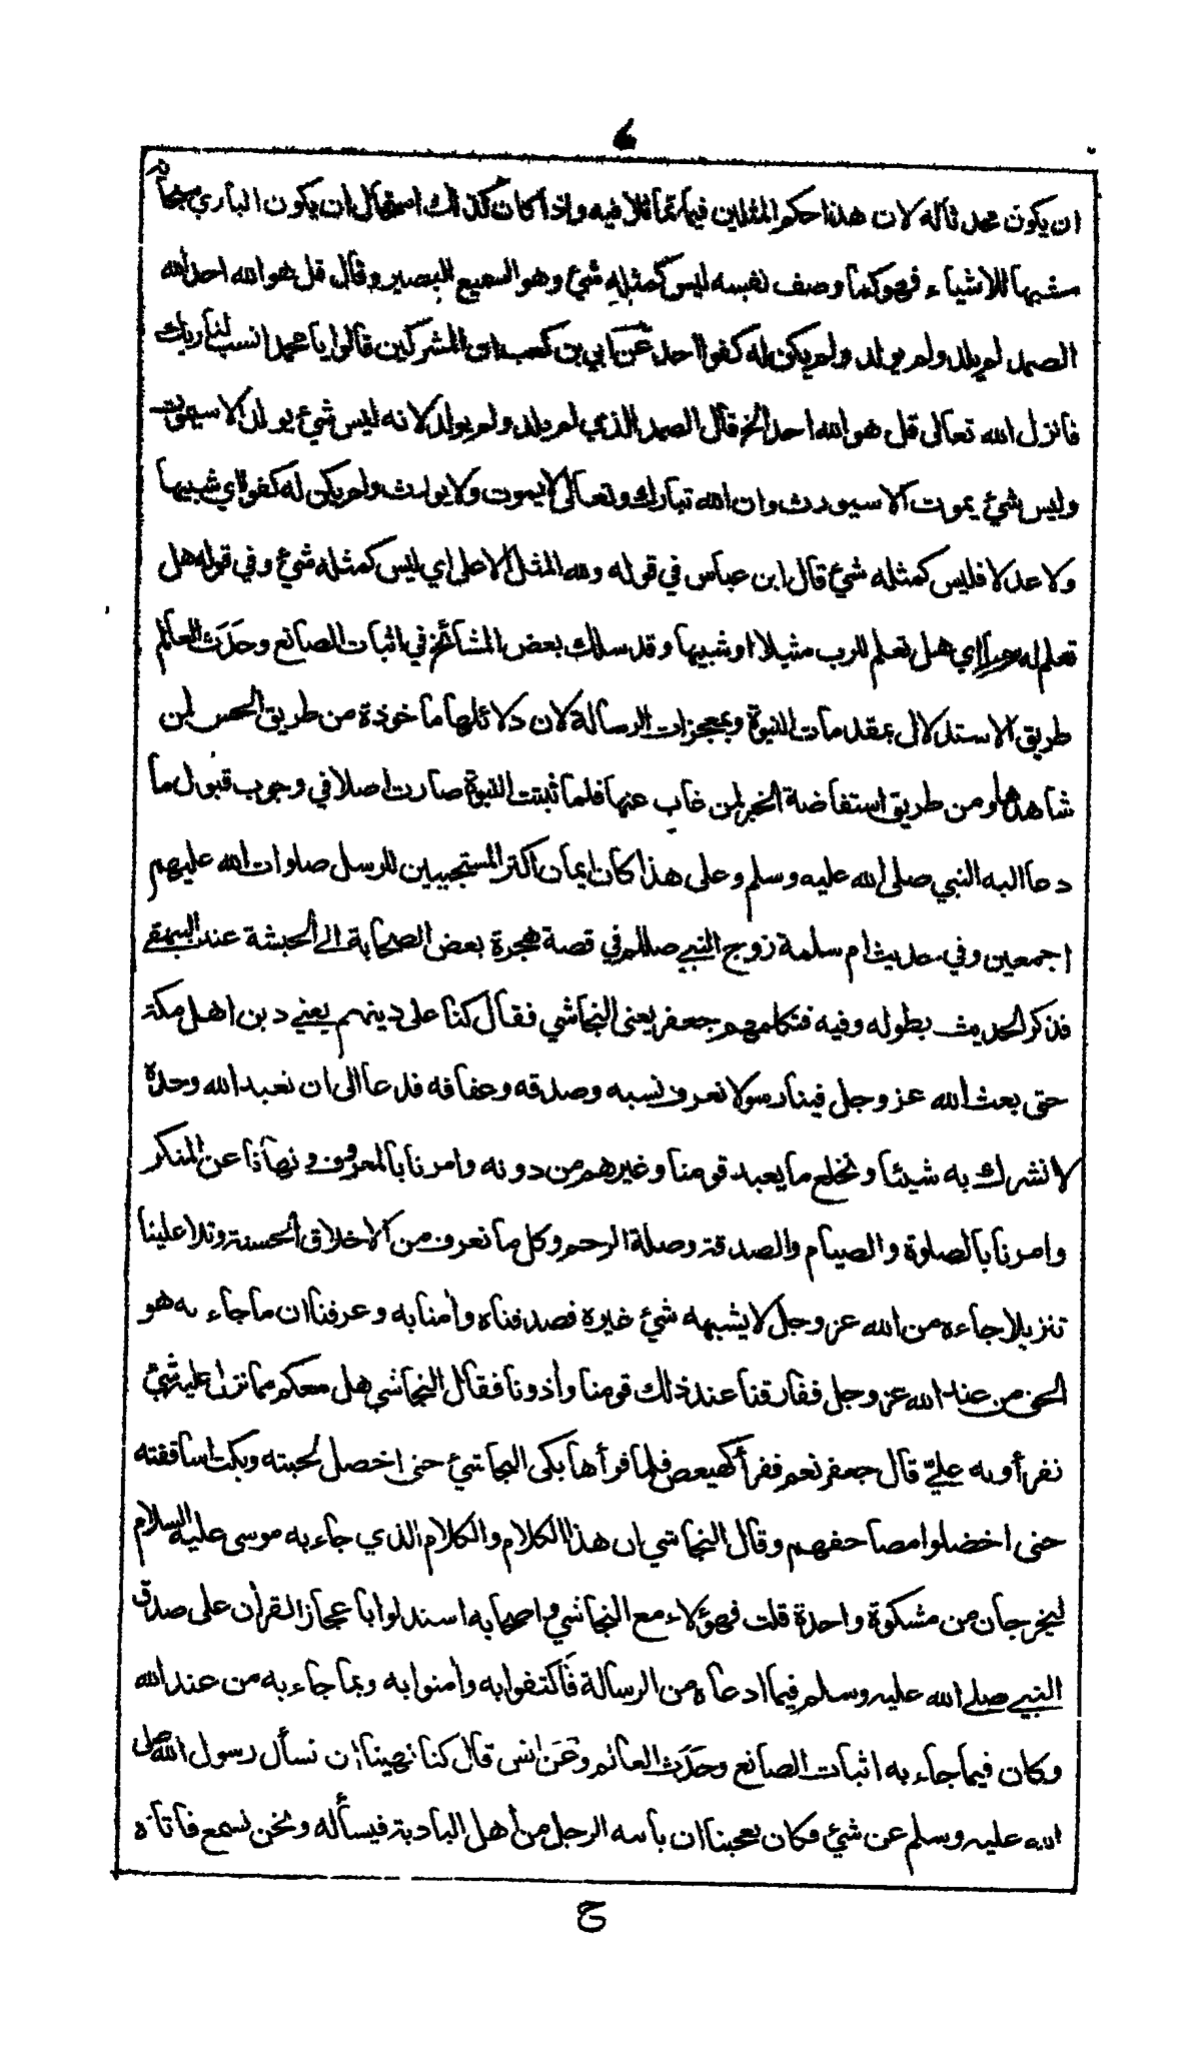 ان يكون محدثا له لان هذا حكم المثلين فيما تماثلا فيه واذا كان كذلك استحال ان يكون الباري سبحانه
مشبها للاشياء فهو كما وصف نفسه ليس كمثله شئ وهو السميع البصير وقال قل هو الله احد الله
الصمد لم يلد ولم يولد ولم يكن له كفوا احد عن ابي بن كعب ان المشركين قالوا يا محمد انسب لنا ربك
فانزل الله تعالى قل هو الله احد الخ قال الصمد الذي لم يلد ولم يولد لانه ليس شئ يولد الا سيموت
وليس شئ يموت الا سيورث وان الله تبارك وتعالى لا يموت ولا يورث ولم يكن له كفوا اي شبيها
ولا عدلا فليس كمثله شئ قال ابن عباس في قوله ولله المثل الاعلى اي ليس كمثله شئ وفي قوله هل
تعلم له سميا اي هل تعلم للرب مثيلا او شبيها وقد سلك بعض المشائخ في اثبات الصانع وحدث العالم
طريق الاستدلال بمقدمات النبوة وبمعجزات الرسالة لان دلائلها ماخوذة من طريق الحس لمن
شاهدها ومن طريق استفاضة الخبر لمن غاب عنها فلما ثبتت النبوة صارت اصلا في وجوب قبول ما
دعا اليه النبي صلى الله عليه وسلم وعلى هذا كان ايمان اكثر المستجيبين للرسل صلوات الله عليهم
اجمعين وفي حديث ام سلمة زوج النبي صللم في قصة هجرة بعض الصحابة الى الحبشة عند البيهقي
فذكر الحديث بطوله وفيه فكلمهم جعفر يعنى النجاشي فقال كنا على دينهم يعني دين اهل مكة
حتى بعث الله عز وجل فينا رسولا نعرف نسبه وصدقه وعفافه فدعا الى ان نعبد الله وحدة
لا نشرك به شيئا ونخلع ما يعبد قومنا وغيرهم من دونه وامرنا بالمعروف ونهانا عن المنكر
وامرنا بالصلوة والصيام والصدقة وصلة الرحم وكل ما نعرف من الاخلاق الحسنة وتلا علينا
تنزيلا جاءه من الله عز وجل لا يشبهه شئ غيره فصدقناه وأمنا به وعرفنا ان ما جاء به هو
الحق من عند الله عز وجل ففارقنا عند ذلك قومنا وأذونا فقال النجاشي هل معكم مما نزل عليه شئ
نقرأونه علي قال جعفر نعم فقرأ كهيعص فلما قرأها بكى النجاشي حتى اخضل لحيته وبكت اساقفته
حتى اخضلوا مصاحفهم وقال النجاشي ان هذا الكلام والكلام الذي جاء به موسى عليه السلام
ليخرجان من مشكوة واحدة قلت فهؤلاء مع النجاشي واصحابه استدلوا باعجاز القرأن على صدق
النبي صلى الله عليه وسلم فيما ادعاه من الرسالة فاكتفوا به وأمنوا به وبما جاء به من عند الله
وكان فيما جاء به اثبات الصانع وحدث العالم وعن انس قال كنا نهينا ان نسأل رسول الله صلى
الله عليه وسلم عن شئ فكان يعجبنا ان ياتيه الرجل من أهل البادية فيسأله ونحن نسمع فاتاه
ح